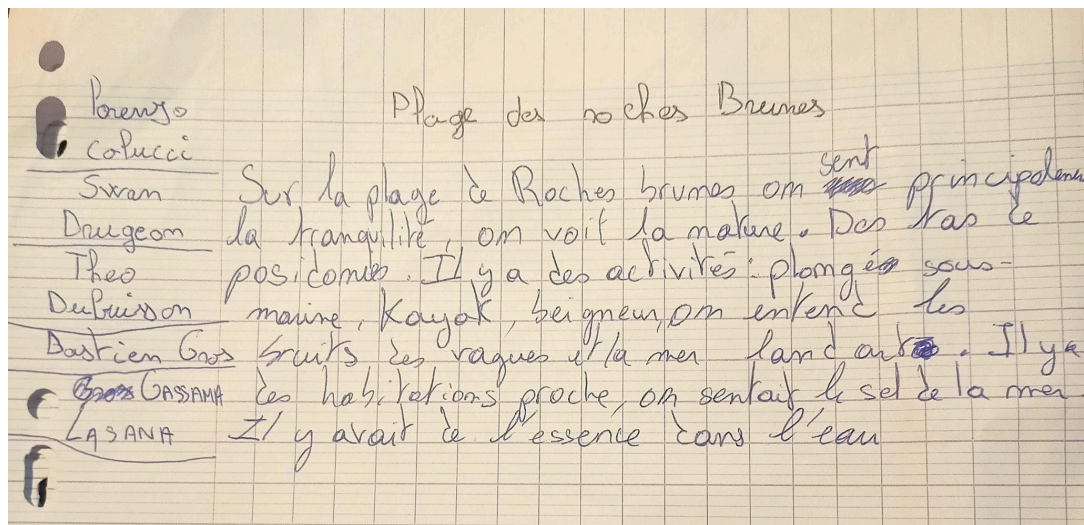 Lorenzo
Colucci
Swan
Drugeon
Theo
Dubuisson
Bastien Gros
GASSAMA
LASANA
Plage des roches Brunes
Sur la plage de Roches brunes on sent principalement
la tranquilité, on voit la nature. Des tas de
posidonies. Il y a des activités : plongée sous-
marine, Kayak, beigneur, on entend les
bruits des vagues et la mer land art. Il y a
des habitations proche, on sentait le sel de la mer
Il y avait de l'essence dans l'eau